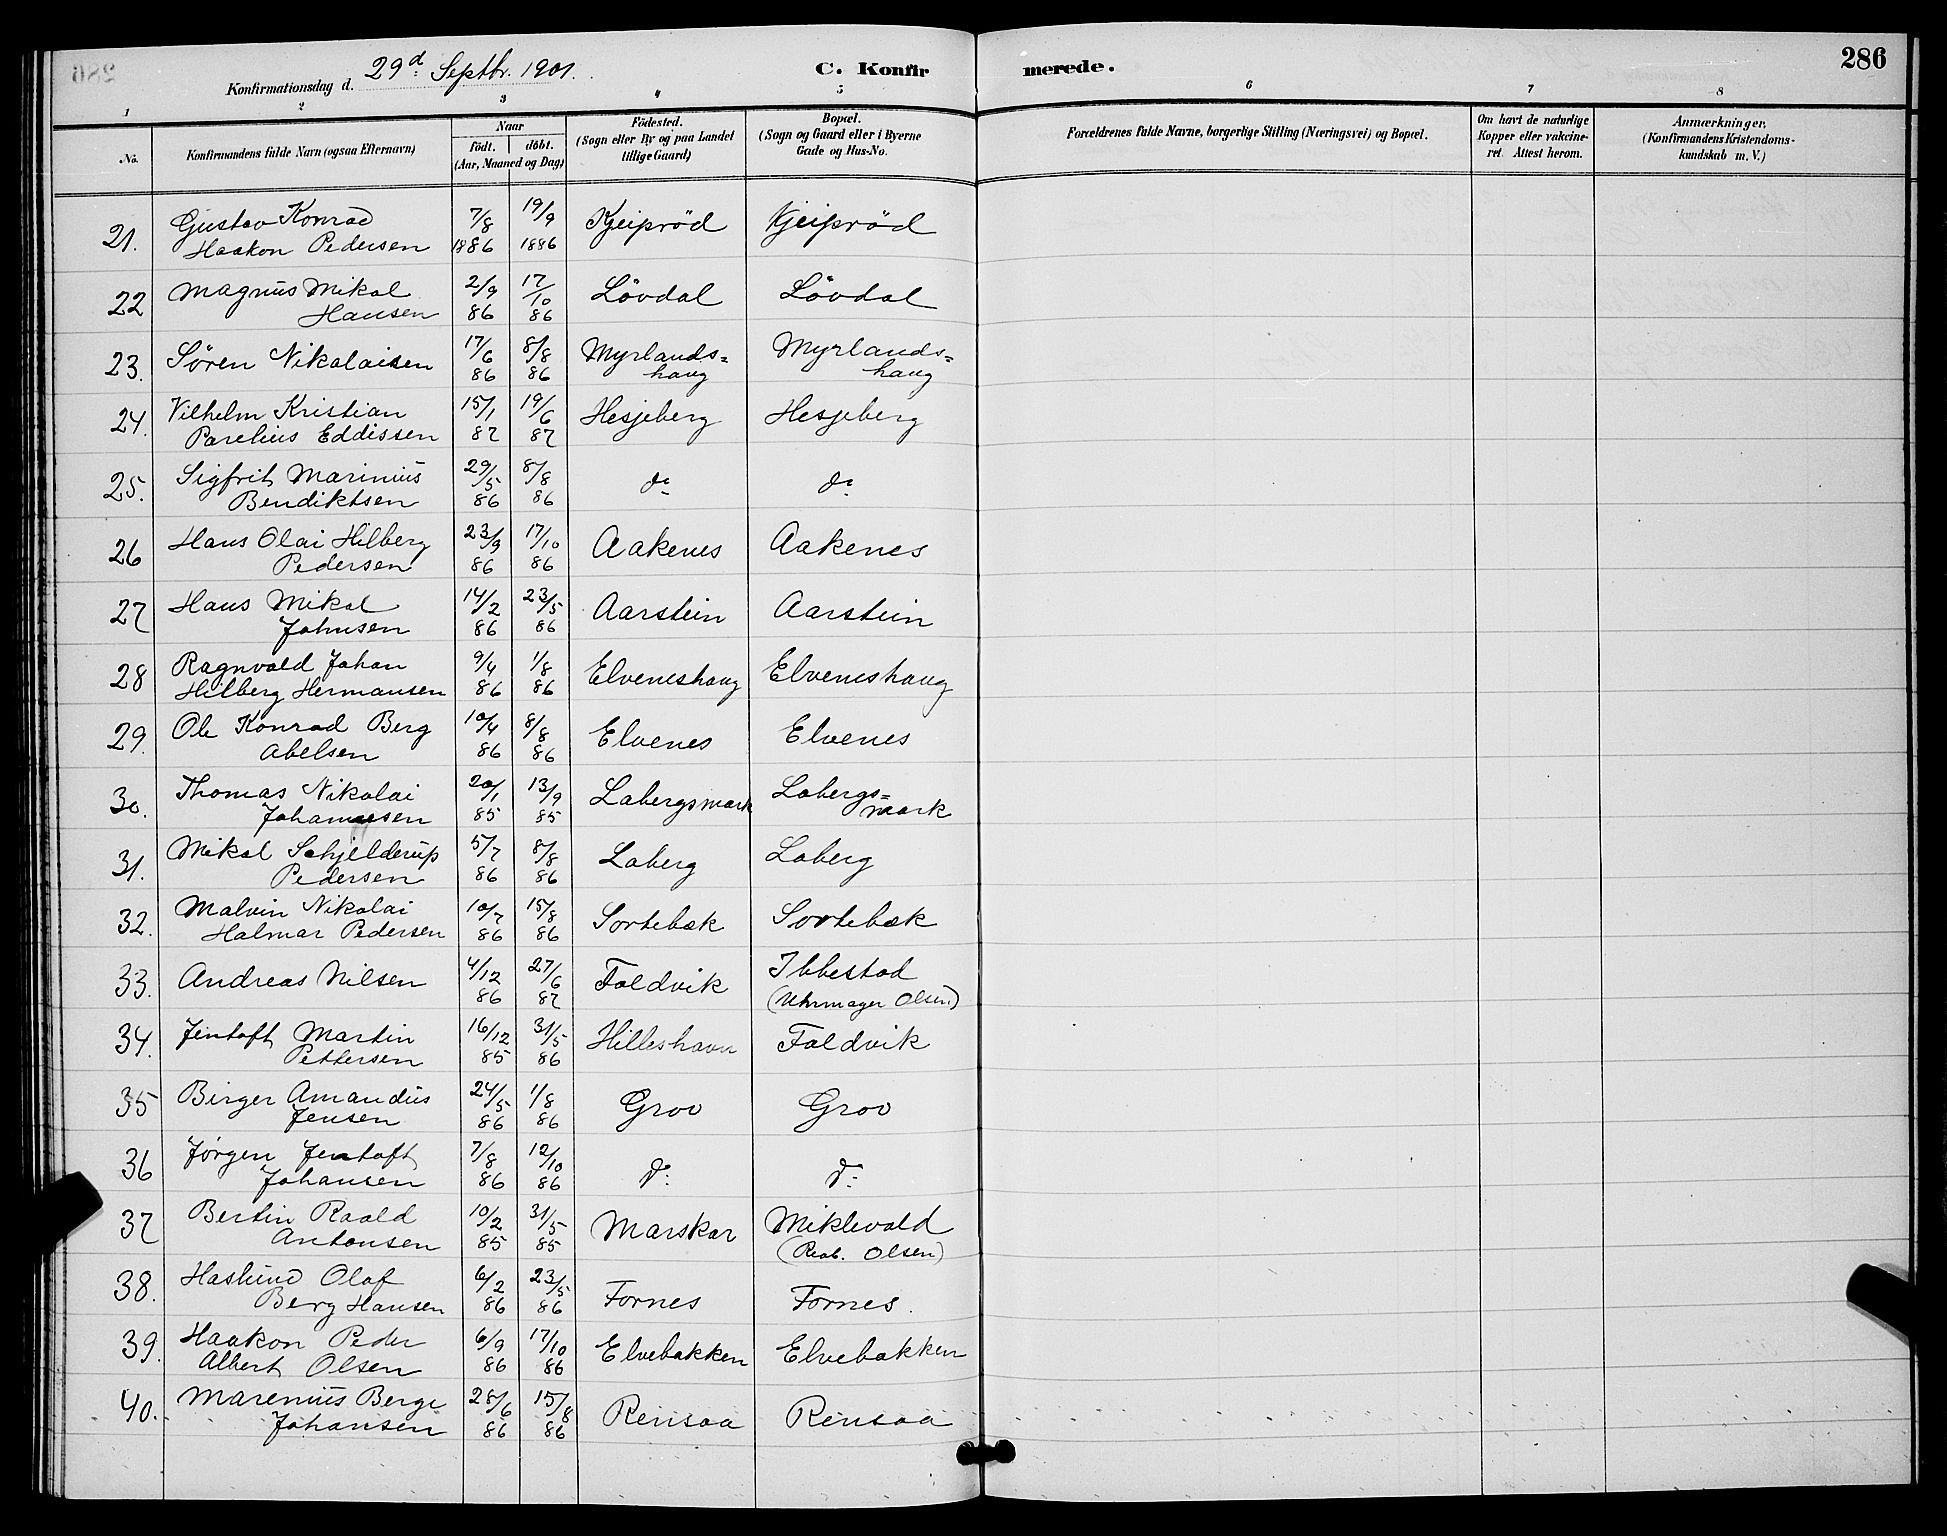 286
Konfirmationsdag d. 29d Septbr. 1901.
C. Konfirmerede.
1 2 3 4 5 6 7 8
No. Konfirmandens fulde Navn (ogsaa Efternavn) Naar født. døbt. (Aar, Maaned og Dag) Födested. (Sogn eller By og paa Landet tillige Gaard) Bopæl. (Sogn og Gaard eller i Byerne Gade og Hus-No. Forældrenes fulde Navne, borgerlige Stilling (Næringsvei) og Bopæl. Om havt de naturlige Kopper eller vakcineret. Attest herom. Anmærkninger. (Konfirmandens Kristendomskundskab m. V.)
21. Gustav Konrad 7/8 19/9 Kjeiprød Kjeiprød
Haakon Pedersen 1886 1886
22 Magnus Mikal 2/9 17/10 Lövdal Lövdal
Hansen 86 86
23. Søren Nikolaisen 17/6 8/8 Myrlands= Myrlands=
86 86 haug haug
24. Vilhelm Kristian 15/1 19/6 Hesjeberg Hesjeberg
Parelius Eddissen 87 87
25. Sigfrit Marinius 29/5 8/8 do do
Bendiktsen 86 86
26 Hans Olai Hilberg 23/9 17/10 Aakenes Aakenes
Pedersen 86 86
27 Hans Mikal 14/2 23/5 Aarstein Aarstein
Johnsen 86 86
28 Ragnvald Johan 9/4 1/8 Elveneshaug Elveneshaug
Hilberg Hermansen 86 86
29. Ole Konrad Berg 10/4 8/8 Elvenes Elvenes
Abelsen 86 86
30. Thomas Nikolai 20/1 13/9 Labergsmark Labergs=
85 85 mark
31. Mikal Schjelderup 5/7 8/8 Laberg Laberg
Pedersen 86 86
32. Malvin Nikolai 10/7 15/8 Sortebæk Sortebæk
Halmar Pedersen 86 86
33. Andreas Nilsen 4/12 27/6 Foldvik Ibbestad
86 87 (Uhrmager Olsen)
34. Jentoft Martin 16/12 31/5 Hilleshavn Foldvik
Pettersen 85 86
35 Birger Amandus 24/5 1/8 Grov Grov
Jensen 86 86
36 Jørgen Jentoft 7/8 12/10 do do
Johansen 86 86
37 Bertin Roald 10/2 31/5 Marskar Miklevold
Antonsen 85 85 Olsen)
38. Haslund Olaf 6/2 23/5 Fornes Fornes.
Berg Hansen 86 86
39. Haakon Peder 6/9 17/10 Elvebakken Elvebakken
Albert Olsen 86 86
40. Marenius Berge 28/6 15/8 Rensaa Rensaa
Johansen 86 86